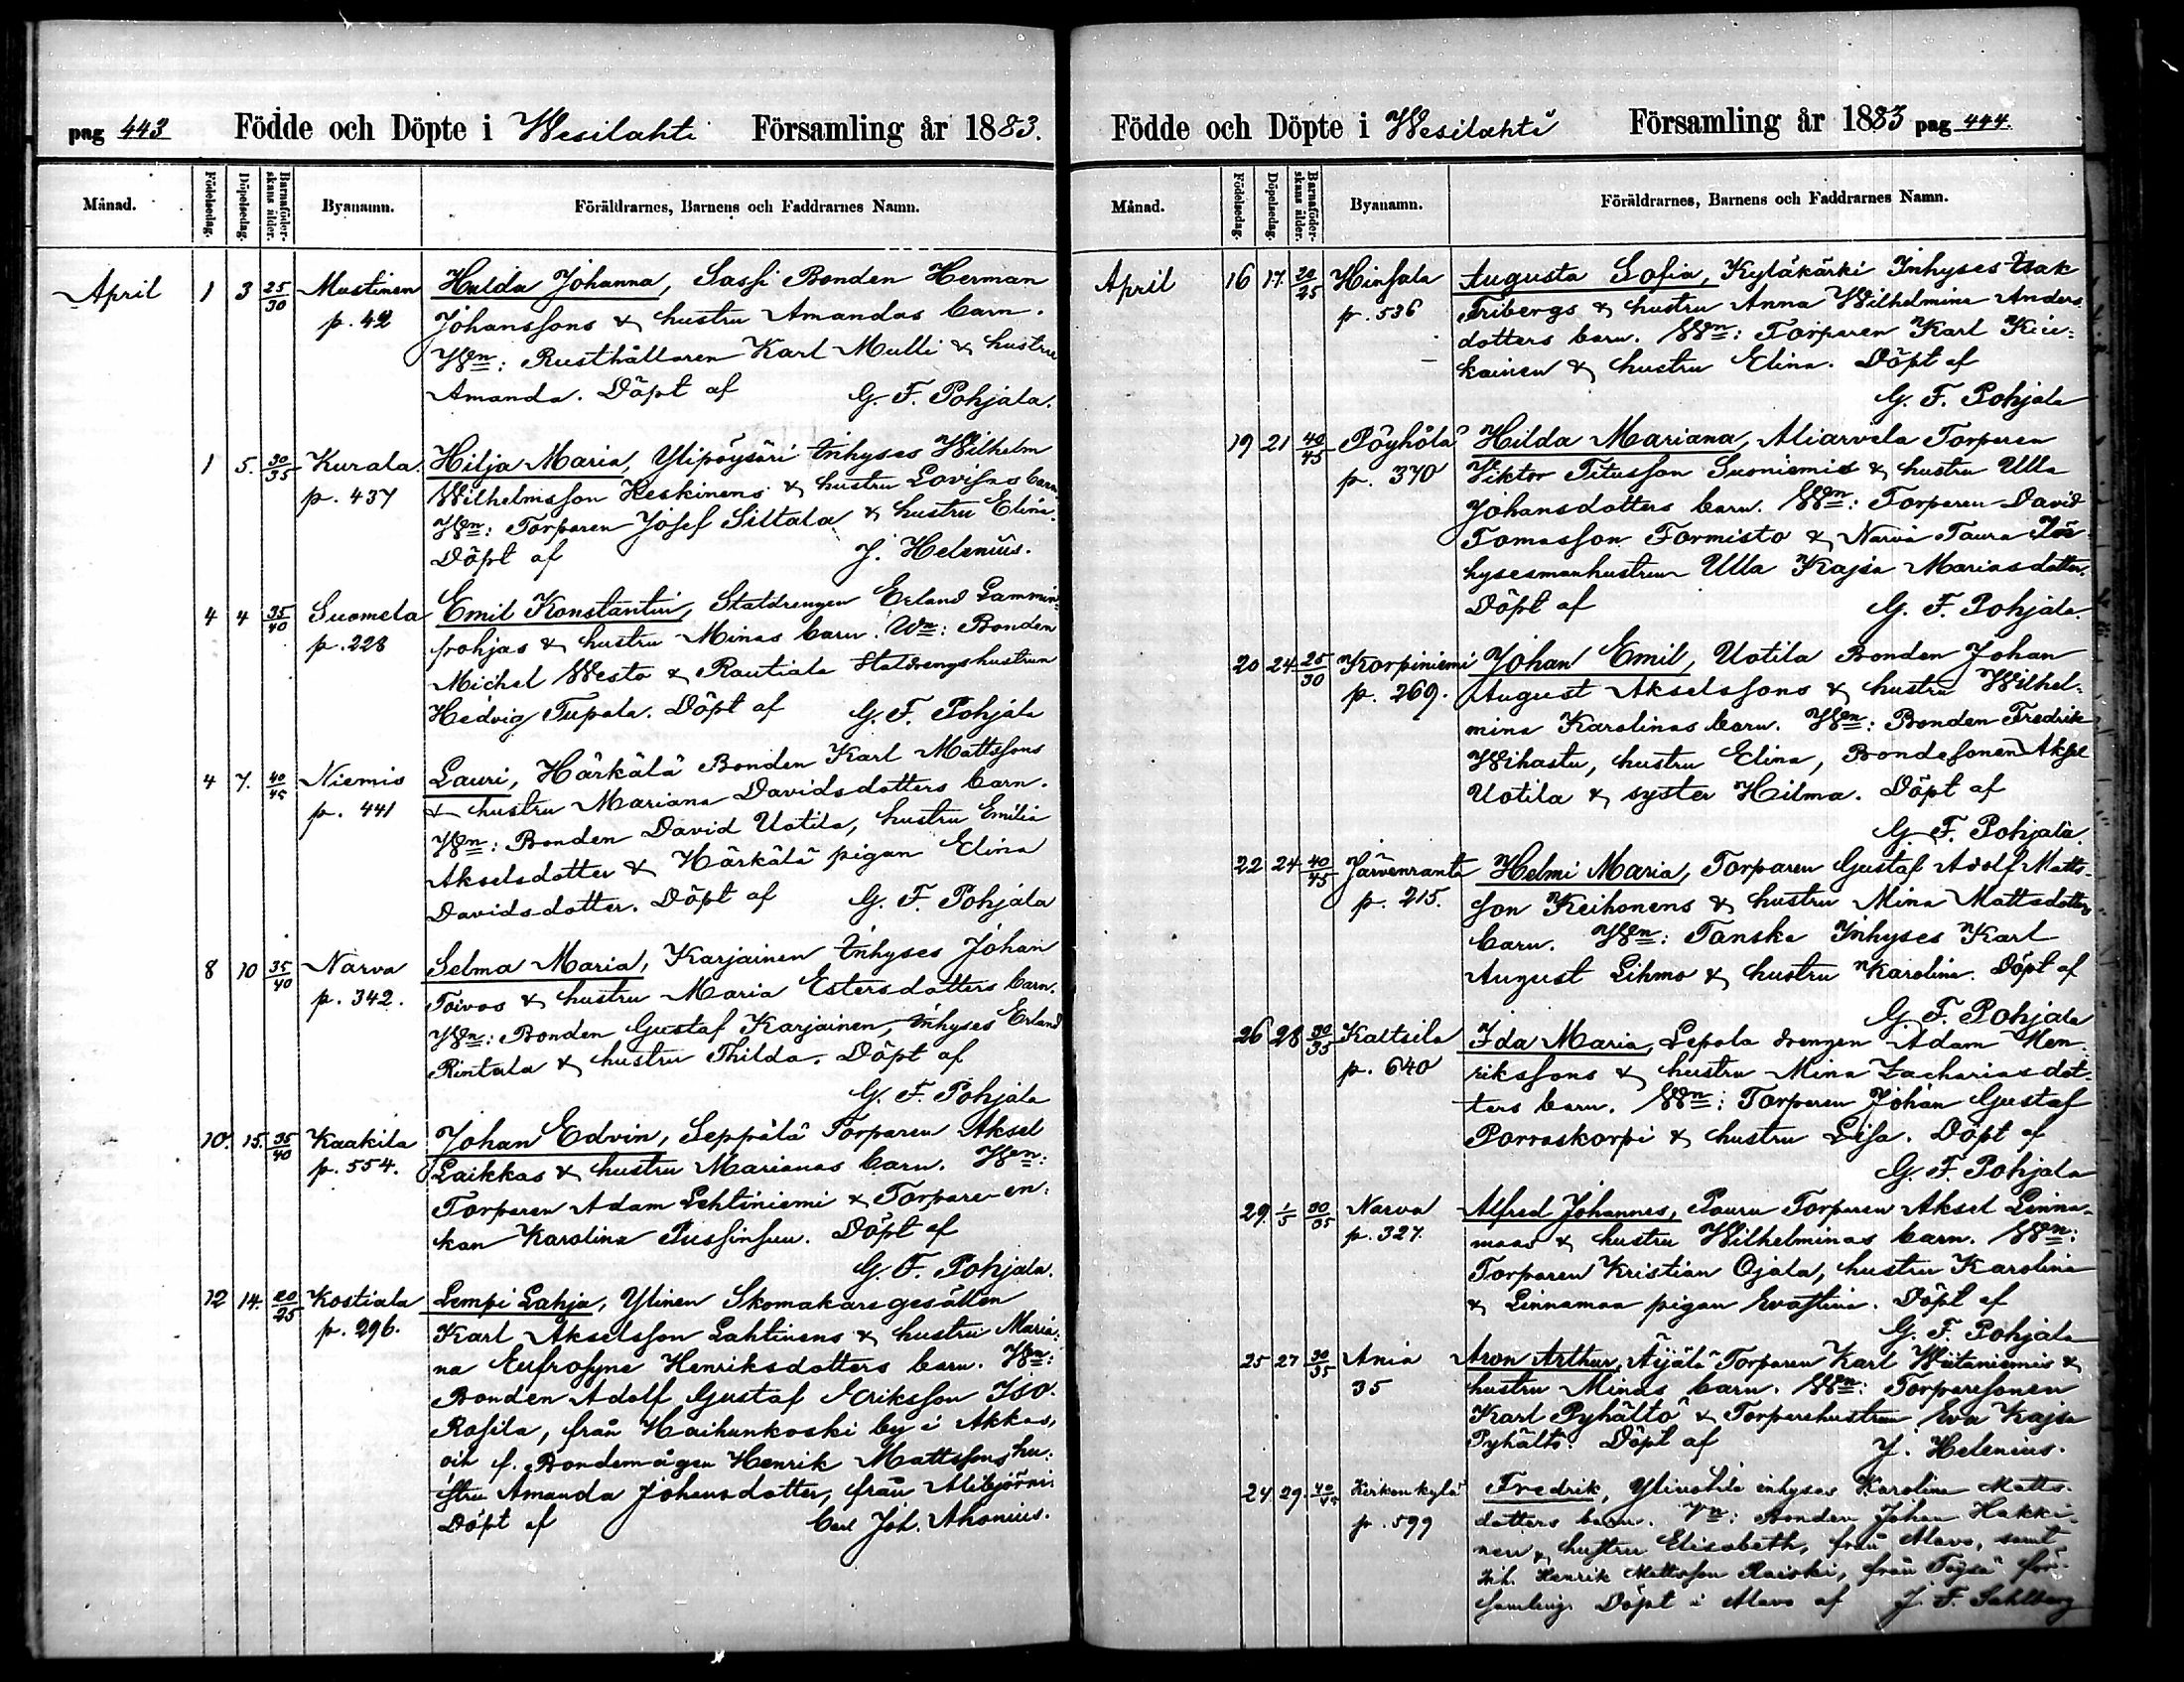 pag 443 Födde och Döpte i Wesilahti Församling år 1883.
Månad. Födelsedag. Döpelsedag. Barnaföderskans ålder. Byanamn. Föräldrarnes, Barnens och Faddrarnes Namn.
April 1 3 25/30 Mustinen Hulda Johanna, Sassi Bonden Herman
p. 42 Johanssons & hustru Amandas barn.
Wn: Rusthållaren Karl Mulli & hustru
Amanda. Döpt af G. F. Pohjala.
1 5. 30/35 Kurala Hilja Maria, Ylipöysäri Inhyses Wilhelm
p. 437 Wilhelmsson Keskinens & hustru Lovisas barn.
Wn: Torparen Josef Siltala & hustru Elina.
Döpt af J. Helenius.
4 4 35/40 Suomela Emil Konstantin, Staldrengen Erland Lammin-
p. 228 pohjas & hustru Minas barn. Wn: Bonden
Michel Westo & Rautiala Staldrengshustrun
Hedvig Tupala. Döpt af G. F. Pohjala
4 7. 40/45 Niemis Lauri, Härkälä Bonden Karl Mattssons
p. 441 & hustru Mariana Davidsdotters barn.
Wn: Bonden David Uotila, hustru Emilia
Akselsdotter & Härkälä pigan Elina
Davidsdotter. Döpt af G. F. Pohjala
8 10 35/40 Narva Selma Maria, Karjainen Inhyses Johan
p. 342. Toivos & hustru Maria Estersdotters barn.
Wn: Bonden Gustaf Karjainen, Inhyses Erland
Rintala & hustru Thilda. Döpt af
G. F. Pohjala
10. 15. 35/40 Kaakila Johan Edvin, Seppälä Torparen Aksel
p. 554. Laikkas & hustru Marianas barn. Wn:
Torparen Adam Lehtiniemi & Torpare-en-
kan Karolina. Döpt af
G. F. Pohjala.
12 14. 20/25 Kostiala Lempi Lahja, Ylinen Skomakaregesällen
p. 296. Karl Akselsson Lahtinens & hustru Maria-
na Eufrosyne Henriksdotters barn. Wn:
Bonden Adolf Gustaf Eriksson Iso-
Rasila, från Haihunkoski by i Akkas,
och f. Bondemågen Henrik Mattssons hu-
stru Amanda Johansdotter, från Alibjörni
Döpt af Carl Joh. Ahonius.
Födde och Döpte i Wesilahti Församling år 1883 pag 444.
Månad. Födelsedag. Döpelsedag. Barnaföderskans ålder. Byanamn. Föräldrarnes, Barnens och Faddrarnes Namn.
April 16 17. 20/25 Hinsala Augusta Sofia, Kyläkärki Inhyses Isak
p. 536 Fribergs & hustru Anna Wilhelmina Anders
dotters barn. Wn: Torparen Karl
kainen & hustru Elina. Döpt af
G. F. Pohjala
19 21 40/45 Pöyhölä Hilda Mariana, Aliarvela Torparen
p. 370 Viktor Titusson Suoniemis & hustru Ulla
Johansdotters barn. Wn: Torparen David
Tomasson Formisto & Narva Taura In-
hysesmanhustrun Ulla Kajsa Mariasdotter.
Döpt af G. F. Pohjala.
20 24 25/30 Korpiniemi Johan Emil, Uotila Bonden Johan
p. 269. August Akselssons & hustru Wilhel-
mina Karolinas barn. Wn: Bonden Fredrik
Wihastu, hustru Elina, Bondesonen Aksel
Uotila & syster Hilma. Döpt af
G. F. Pohjala.
22 24 40/45 Järvenranta Helmi Maria, Torparen Gustaf Adolf Matts-
p. 215. son Keihonens & hustru Mina Mattsdotters
barn. Wn: Tanska Inhyses Karl
August Lihmo & hustru Karolina. Döpt af
G. F. Pohjala
26 28 30/35 Kaltsila Ida Maria, Lepola drengen Adam Hen-
p. 640 rikssons & hustru Mina Zachariasdot-
ters barn. Wn: Torparen Johan Gustaf
Porraskorpi & hustru Lisa. Döpt af
G. F. Pohjala
29. 1/5 30/35 Narva Alfred Johannes, Pauru Torparen Aksel Linna-
p. 327. maas & hustru Wilhelminas barn. Wn:
Torparen Kristian Ojala, hustru Karolina
& Linnamaa pigan Evastina. Döpt af
G. F. Pohjala
25 27 30/35 Ania Aron Arthur, Äijälä Torparen Karl Wiitaniemis &
35 hustru Minas barn. Wn: Torparesonen
Karl Pyhältö & Torparehustrun Eva Kajsa
Pyhältö. Döpt af J. Helenius.
24 29. 40/45 Kirkonkylä Fredrik, Yliuotila inhyses Karolina Matts-
p. 599 dotters barn. Vn: Bonden Johan Hakki-
nen & hustru Elisabeth, från Alavo, samt
Inh. Henrik Mattsson Raiski, från Töysä för-
samling. Döpt i Alavo af J. F. Sahlberg